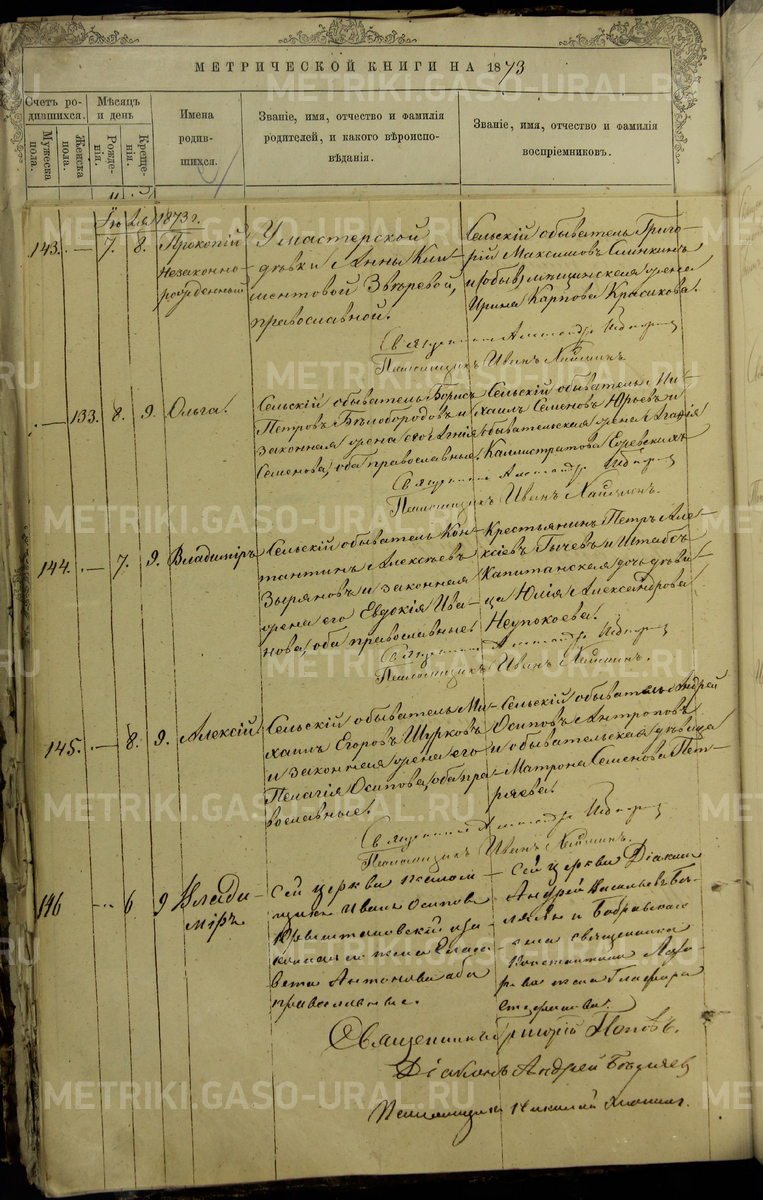 МЕТРИЧЕСКОЙ КНИГИ НА 1873
Счетъ родившихся.
Мѣсяцъ и день
Имена родившихся.
Званіе, имя, отчество и фамилія родителей, и какого вѣроисповѣданія.
Званіе, имя, отчество и фамилія воспріемниковъ.
Мужеска пола.
Женска пола.
Рожденія.
Крещенія.
1873 г.
143. — 7. 8. Прокопій
Незаконно-
рожденный
У мастерской
дѣвки Анны Кли-
ментовой Звѣревой,
православной.
Сельскій обыватель Григо-
рій Максимовъ
жена
Ирина Карпова Красикова.
Священникъ Александръ
Псаломщикъ Иванъ
— 133. 8. 9. Ольга.
Сельскій обыватель Борисъ
Петровъ Бѣлобородовъ и
законная жена его
Семенова, оба православные.
Сельскій обыватель Ми-
хаилъ Семеновъ Юрьевъ и
обывательская жена
Каллистратова
Священникъ Александръ
Псаломщикъ Иванъ
144. — 7. 9. Владиміръ
Сельскій обыватель Кон-
стантинъ Алексѣевъ
Зыряновъ и законная
жена его Евдокія Ива-
нова, оба православные.
Крестьянинъ Петръ Але-
ксѣевъ и Штабсъ
Капитанская дочь дѣви-
ца Юлія Александрова
Неупокоева.
Священникъ Александръ
Псаломщикъ Иванъ
145. — 8. 9. Алексій
Сельскій обыватель Ми-
хаилъ Егоровъ Шурковъ
и законная жена его
Пелагія Осипова, оба пра-
вославные.
Сельскій обыватель Андрей
Осиповъ Антроповъ
и обывательская дѣвица
Матрона Семенова Пет-
ряева.
Священникъ Александръ
Псаломщикъ Иванъ
146 — 6 9 Влади-
міръ
Сей церкви псалом-
щикъ Иванъ Осиповъ
и за-
конная его жена Елиса-
вета Антонова оба
православные.
Сей церкви Діаконъ
Андрей Васильевъ
и
села священника
Константина
жена Глафира
Священникъ Григорій Поповъ.
Діаконъ Андрей
Псаломщикъ Николай
METRIKI.GASO-URAL.RU